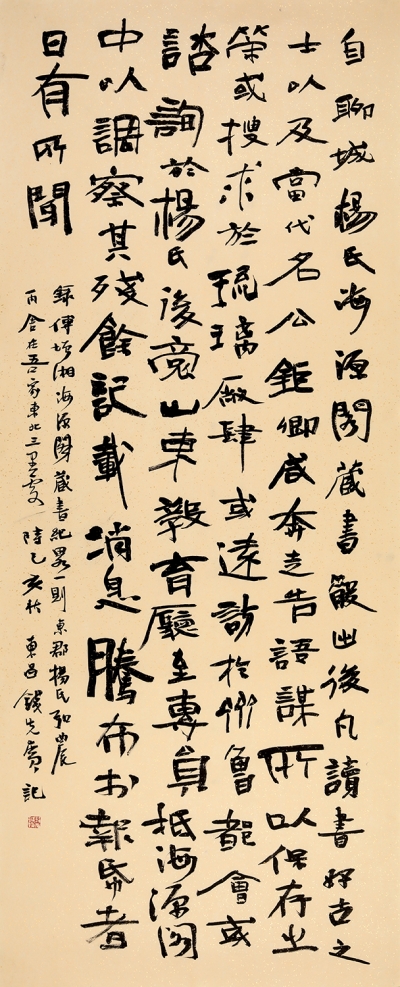 自聊城楊氏海源閣藏書散出後凡讀書好古之
士以及當代名公鉅卿咸奔走告語謀所以保存之
策或搜求於琉璃廠肆或遠訪於齊魯都會或
諮詢於楊氏後裔山東教育廳至專員抵海源閣
中以調察其殘餘記載消息騰布於報帋者
日有所聞
錄傅增湘海源閣藏書紀畧一則東郡楊氏弘農
丙舍在吾家東北三里處時己亥秋東昌記